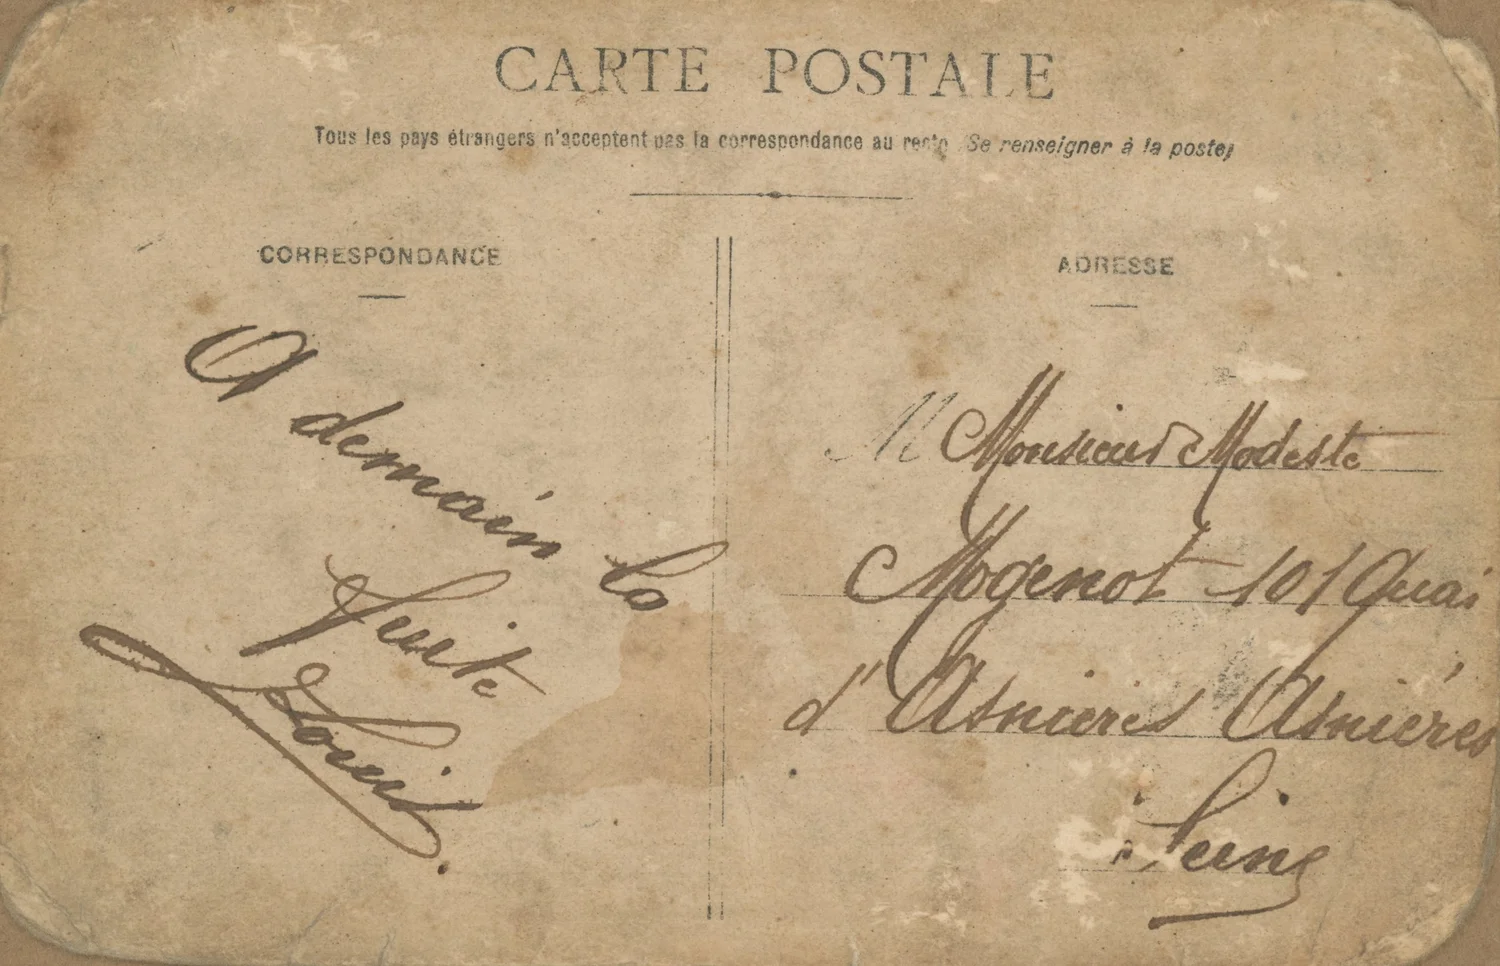 CARTE POSTALE
Tous les pays étrangers n'acceptent pas la correspondance au recto (Se renseigner à la poste)
CORRESPONDANCE
A demain la
suite
Louis
ADRESSE
M Monsieur Modeste
Mogenot 101 Quai
d'Asnieres Asnières
Seine